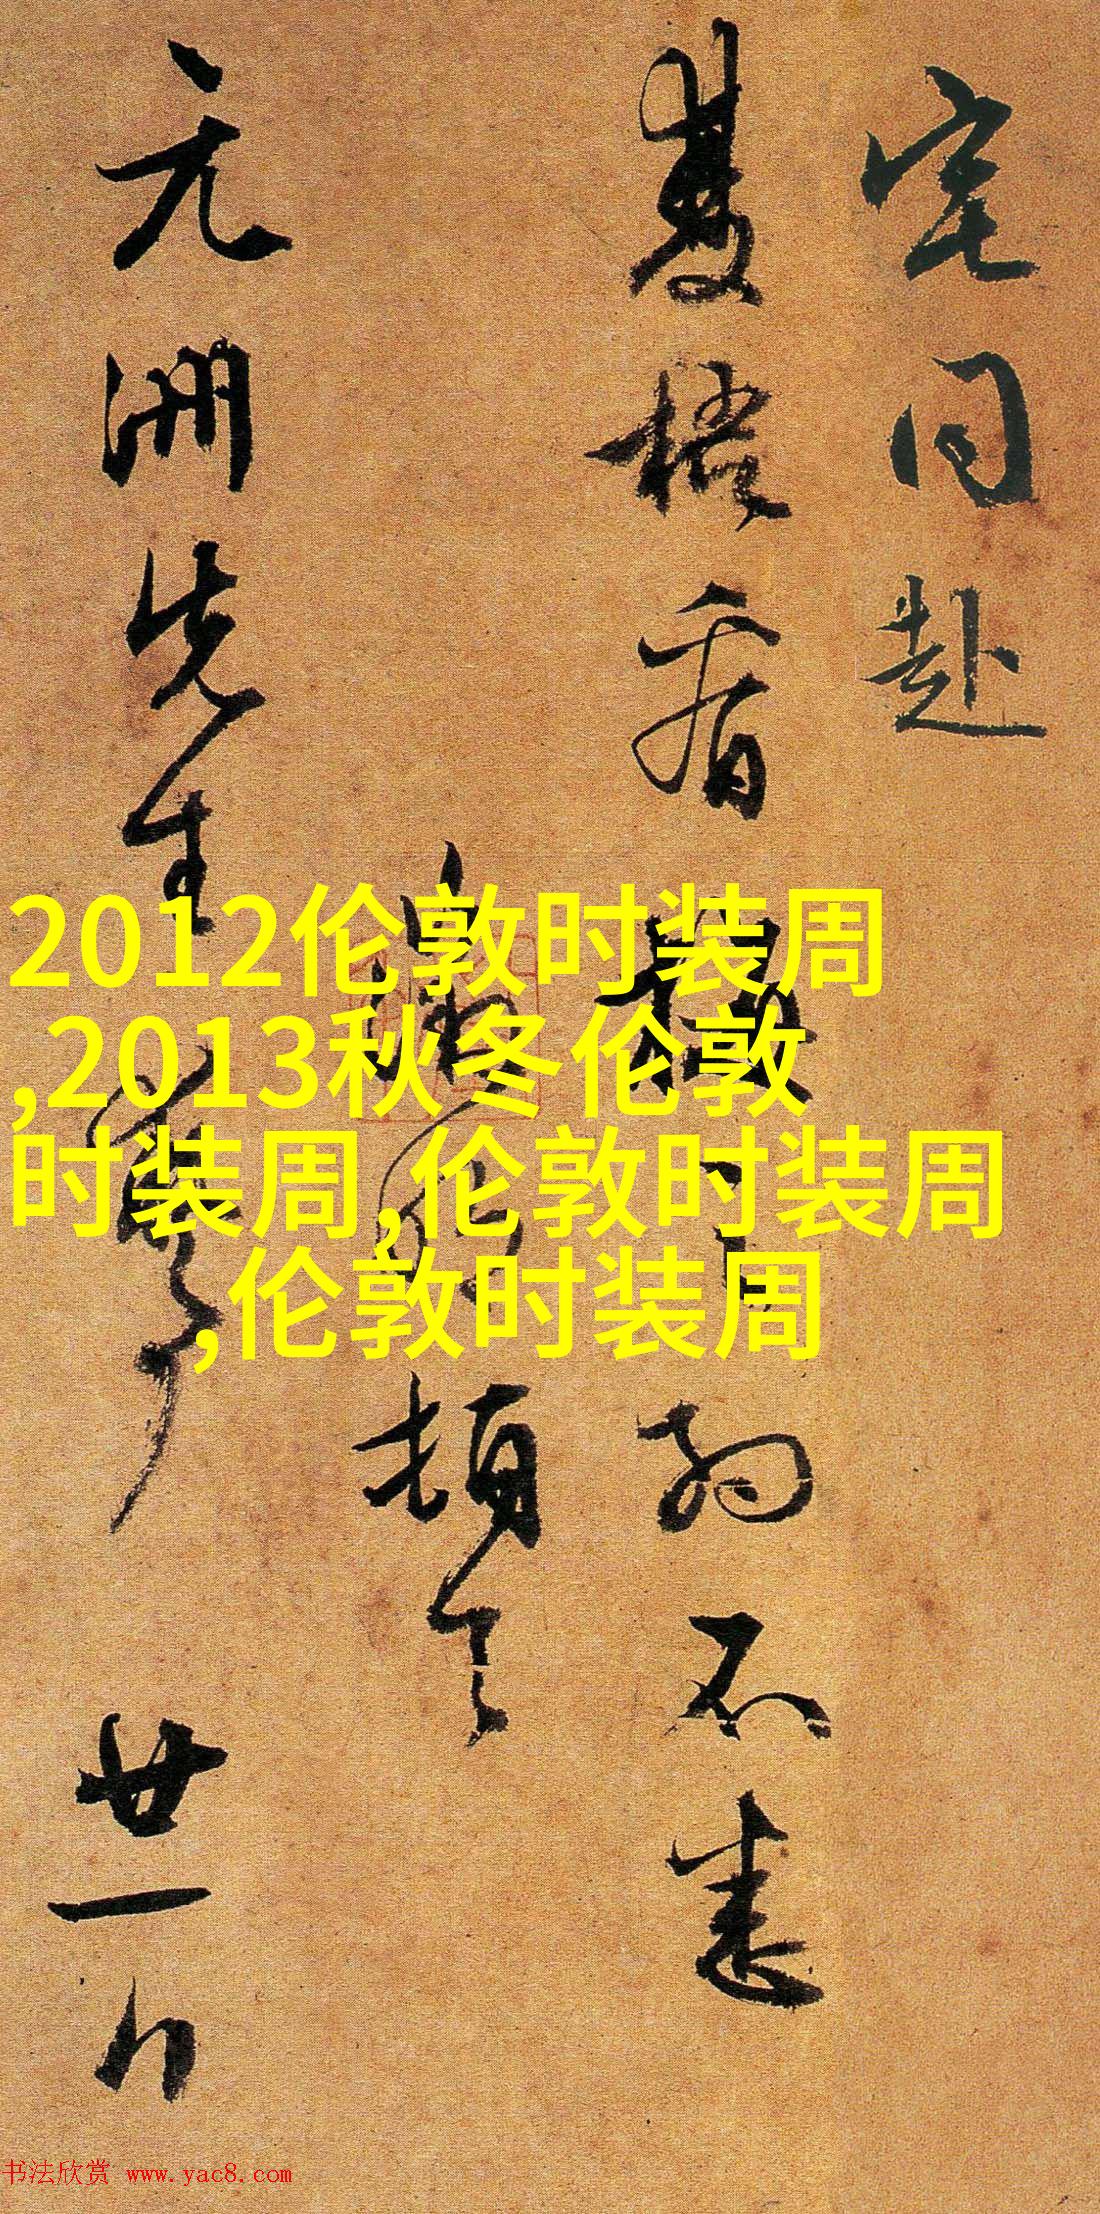 宅同赴
雙梧看 不悉
頓首
元洲先生 廿一日
2012伦敦时装周
,2013秋冬伦敦
时装周,伦敦时装周
,伦敦时装周
书法欣赏 www.yac8.com